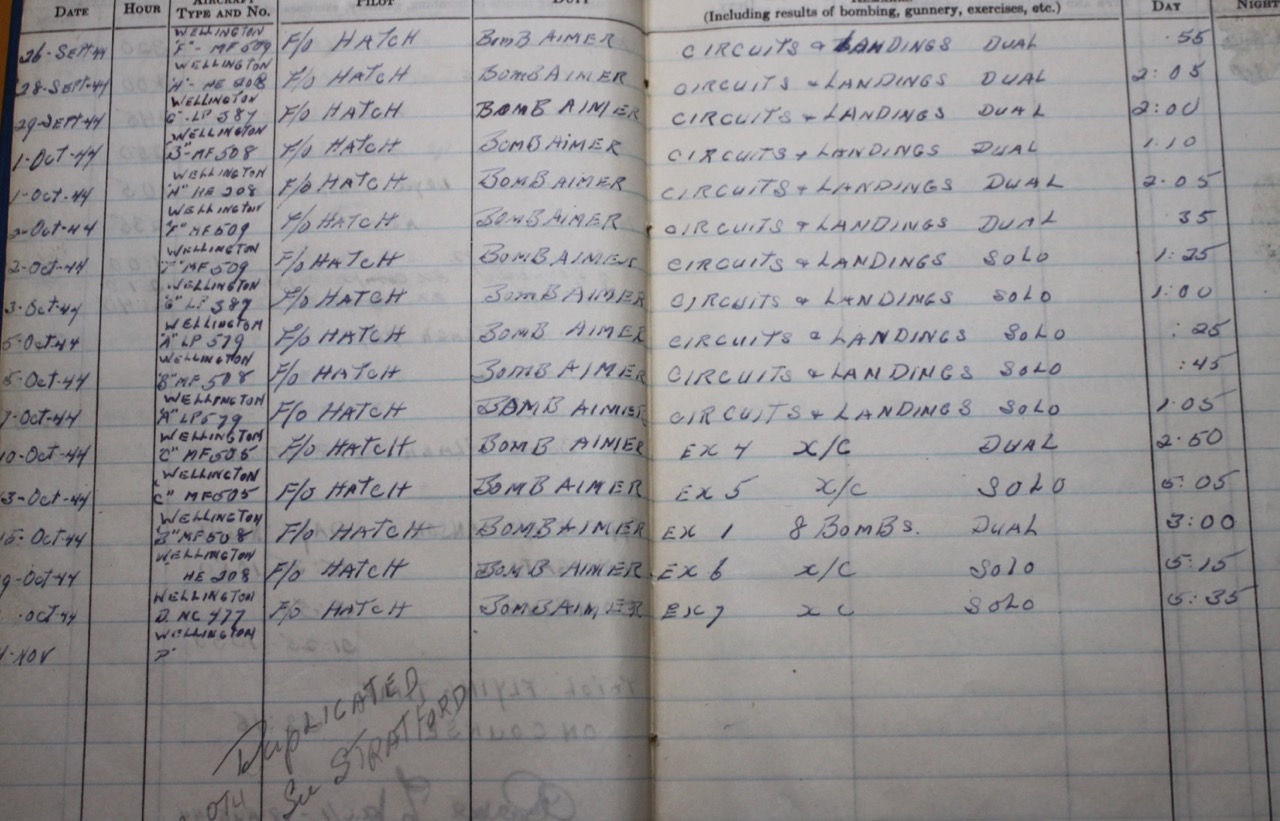 DATE HOUR AIRCRAFT TYPE AND NO. PILOT DUTY REMARKS (Including results of bombing, gunnery, exercises, etc.) DAY NIGHT
26-SEPT-44 WELLINGTON "F"- MF 509 F/o HATCH BOMB AIMER CIRCUITS & LANDINGS DUAL .55
28-SEPT-44 WELLINGTON "A"- HE 208 F/o HATCH BOMB AIMER CIRCUITS & LANDINGS DUAL 2:05
29-SEPT-44 WELLINGTON "G"-LP 387 F/o HATCH BOMB AIMER CIRCUITS & LANDINGS DUAL 2:00
1-OCT-44 WELLINGTON "B"-MF508 F/o HATCH BOMB AIMER CIRCUITS & LANDINGS DUAL 1.10
1-OCT-44 WELLINGTON "A" HE 208 F/o HATCH BOMB AIMER CIRCUITS & LANDINGS DUAL 2.05
2-OCT-44 WELLINGTON "F" MF509 F/o HATCH BOMB AIMER CIRCUITS & LANDINGS DUAL 35
2-OCT-44 WELLINGTON "F" MF509 F/o HATCH BOMB AIMER CIRCUITS & LANDINGS SOLO 1:25
3-OCT-44 WELLINGTON "G" LP 387 F/o HATCH BOMB AIMER CIRCUITS & LANDINGS SOLO 1:00
5-OCT-44 WELLINGTON "A" LP 579 F/o HATCH BOMB AIMER CIRCUITS & LANDINGS SOLO :25
-OCT-44 WELLINGTON "B" MF 508 F/o HATCH BOMB AIMER CIRCUITS & LANDINGS SOLO :45
7-OCT-44 WELLINGTON "A" LP579 F/o HATCH BOMB AIMER CIRCUITS & LANDINGS SOLO 1.05
10-OCT-44 WELLINGTON "C" MF505 F/o HATCH BOMB AIMER EX 4 X/C DUAL 2.50
3-OCT-44 WELLINGTON "C" MF505 F/o HATCH BOMB AIMER EX 5 X/C SOLO 5:05
15-OCT-44 WELLINGTON "B" MF508 F/o HATCH BOMB AIMER EX 1 8 BOMBS. DUAL 3:00
9-OCT-44 WELLINGTON HE 208 F/o HATCH BOMB AIMER EX 6 X/C SOLO 5:15
OCT 44 WELLINGTON D. NC 477 F/o HATCH BOMB AIMER EX 7 X C SOLO 5:35
NOV WELLINGTON
DUPLICATED
See STRATFORD